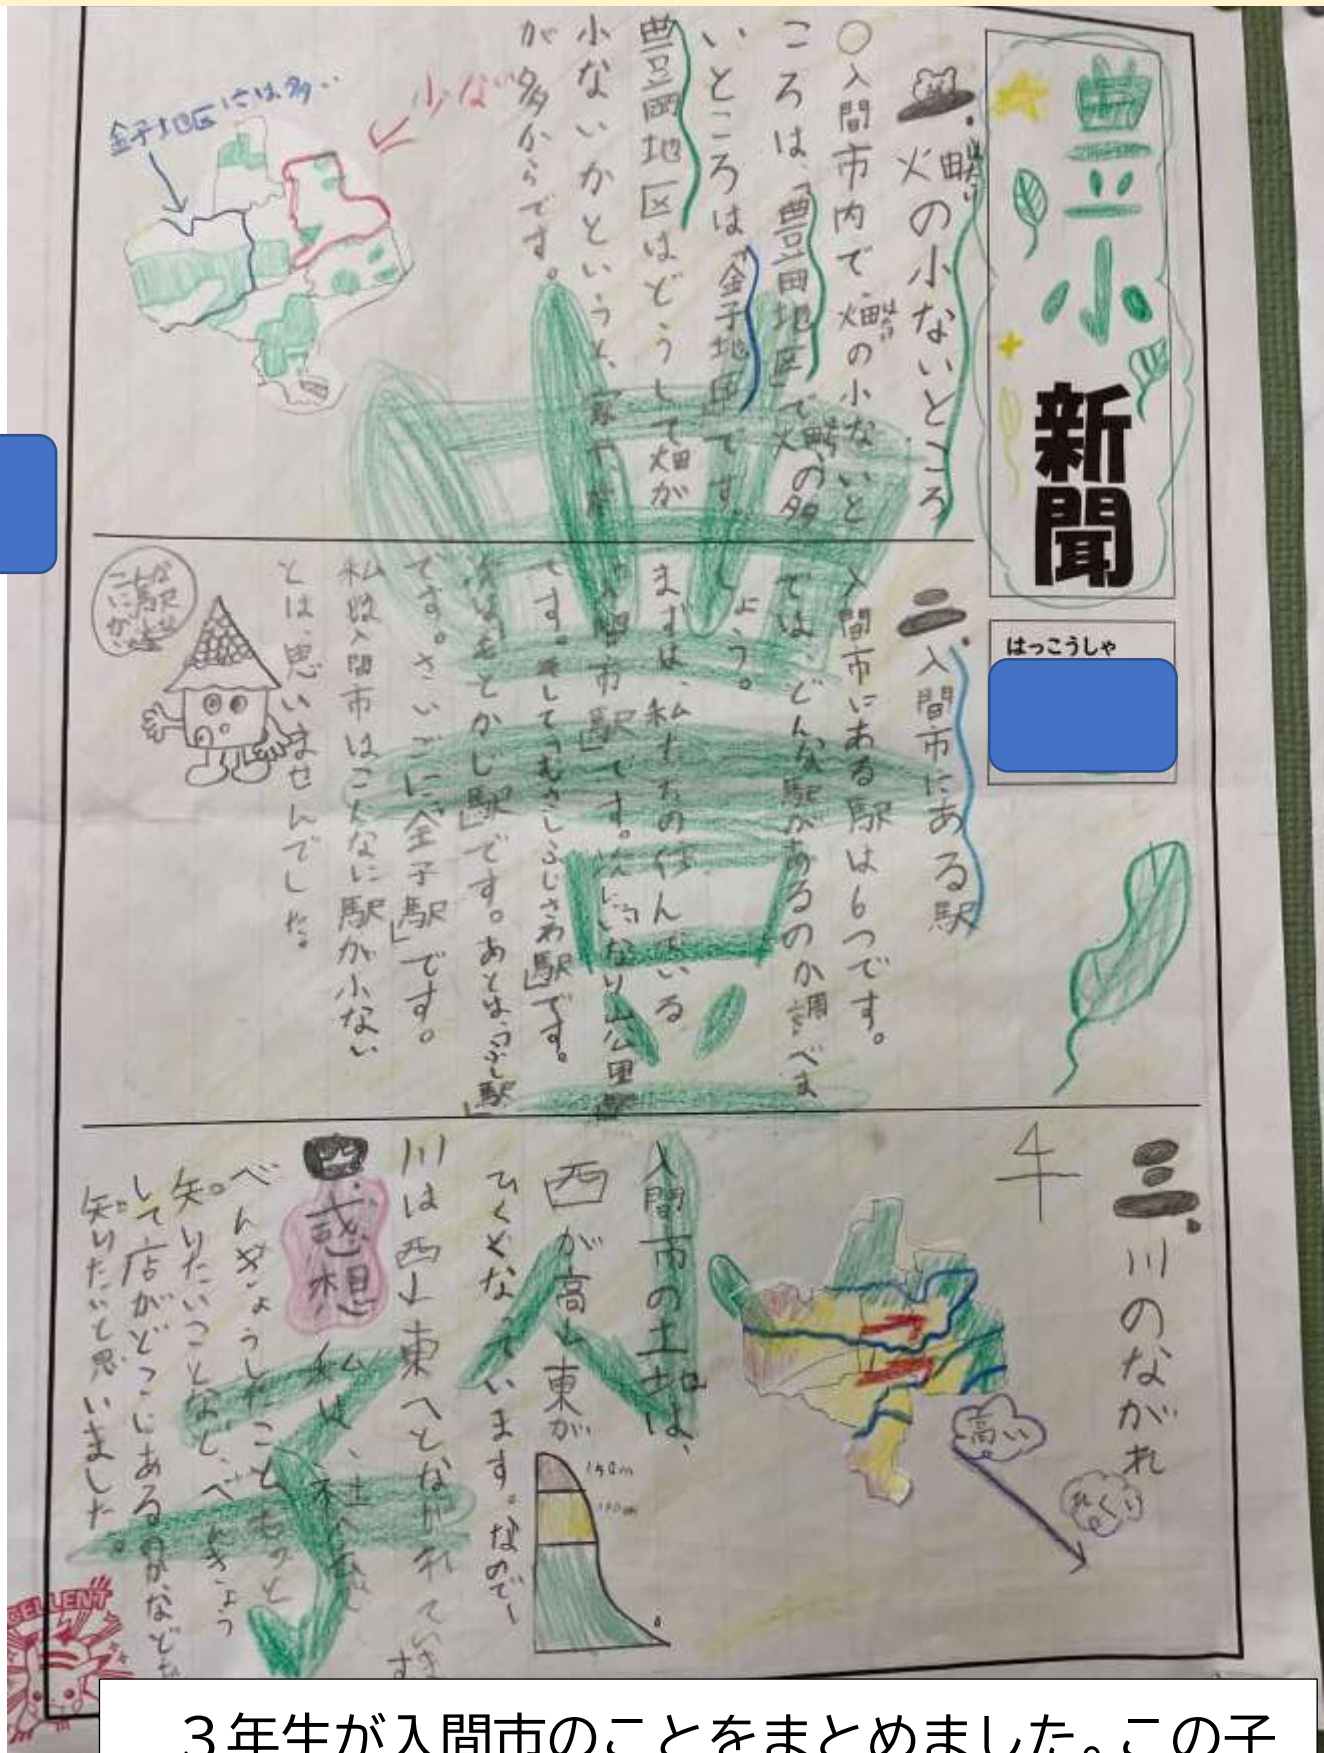 豊小
新聞
はっこうしゃ
一.畑の小ないところ
○入間市内で、畑の小ないと
ころは、「豊岡地区」で畑の多
いところは「金子地区」です。
豊岡地区はどうして畑が
小ないかというと、家や
が多からです。
少ない
金子地区には多
二.入間市にある駅
入間市にある駅は6つです。
では、どんな駅があるのか調べま
しょう。
まずは、私たちの住んでいる
「入間市駅」です。次に「いなり山公園駅」
です。そして「むさしふじさわ駅」です。
次は「もとかじ駅」です。あとは、「ぶし駅」
です。さいごに「金子駅」です。
私は入間市はこんなに駅が小ない
とは、思いませんでした。
こんな
に駅が
三.川のながれ
高い
ひくい
入間市の土地は、
西が高し東が
ひくくなっています。なので
川は西し東へとながれていま
す
150m
100m
0
四.感想
私は、社会で
べんきょうしたことをもっと
知りたいことなど、べんきょう
して店がどこにあるのかなども
知りたいと思いました。
EXCELLENT
３年生が入間市のことをまとめました。この子